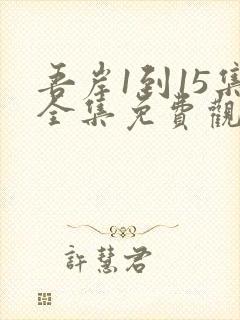 吾岸1到15集
全集免費觀
許慧君